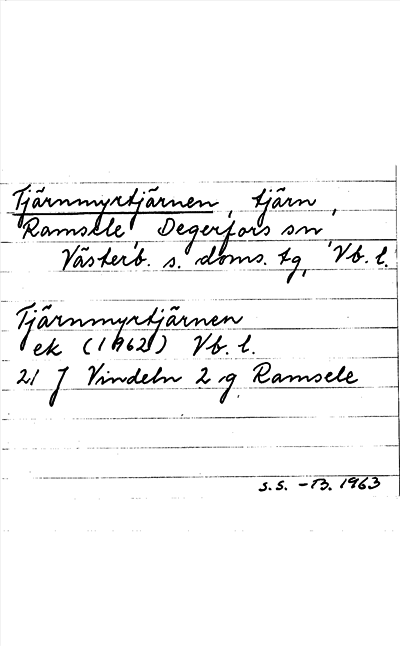 Tjärnmyrtjärnen, tjärn,
Ramsele, Degerfors sn,
Västerb. s. doms. tg, Vb. l.
Tjärnmyrtjärnen
ek (1962) Vb. l.
21 J Vindeln 2 g Ramsele
S.S. - B. 1963